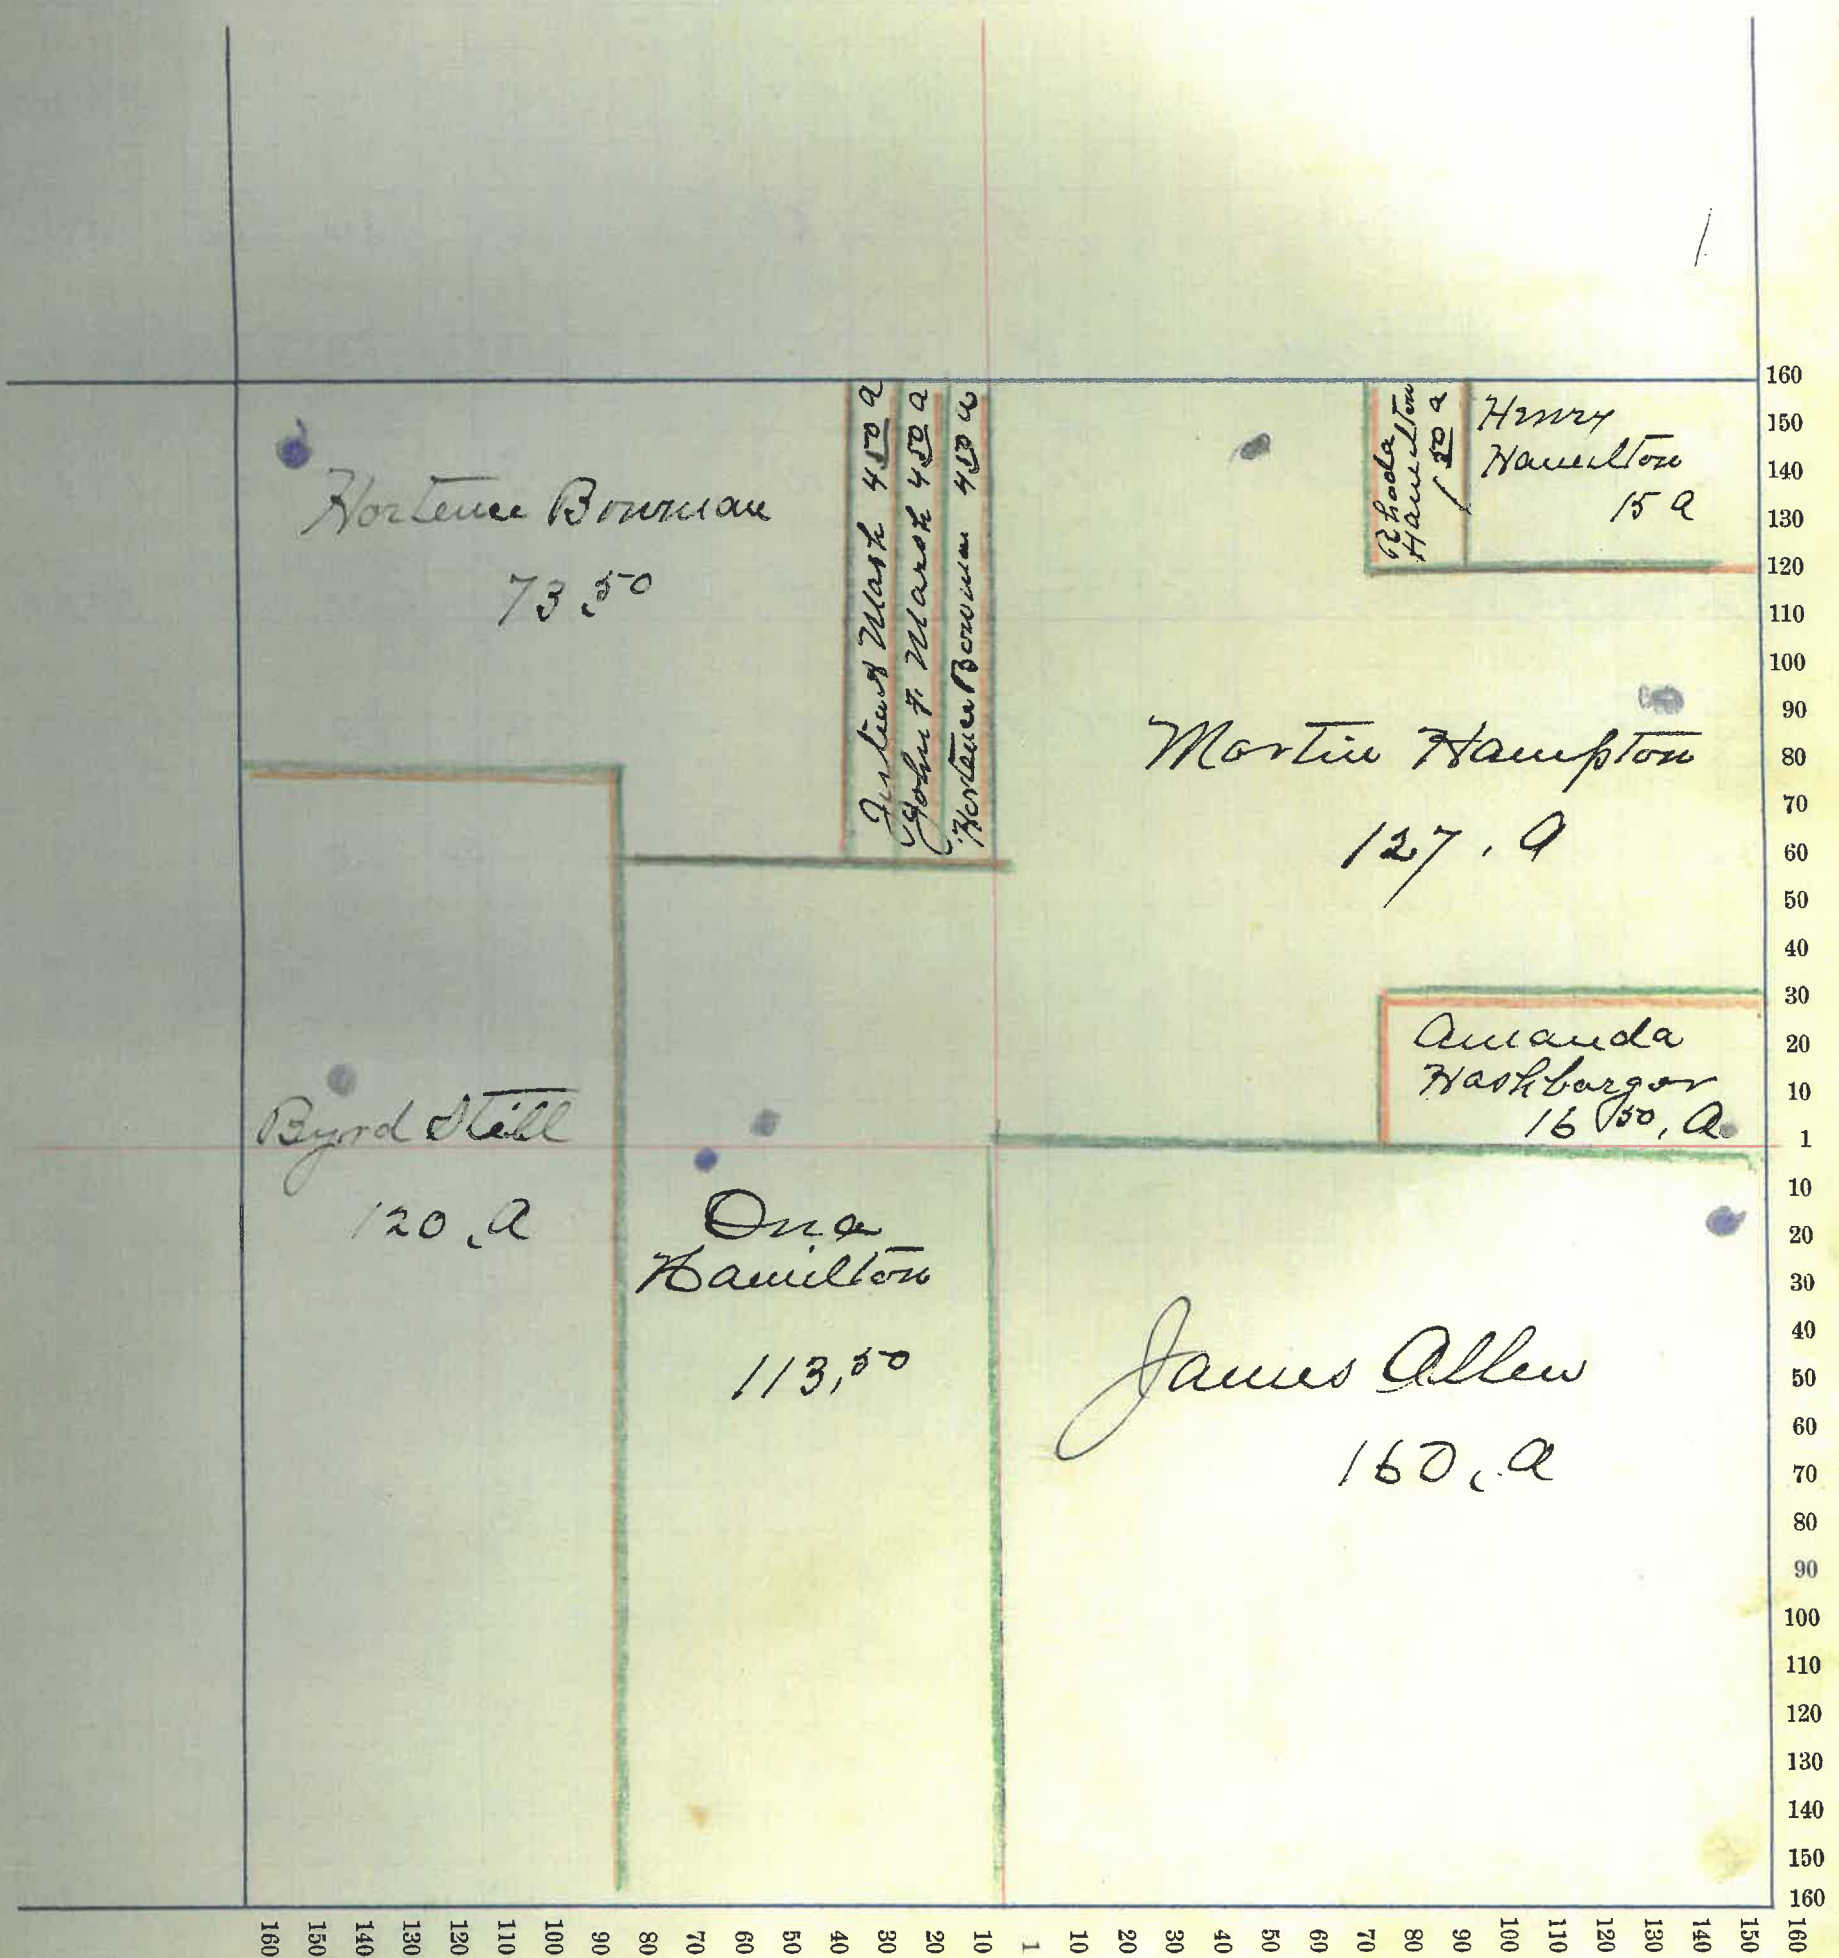 1
Hortence Bowman
73.50
Mash 4 50 a
John F. Marsh 4 50 a
Hortence Bowman 4 50 a
Rhoda
Hamilton
1 50 a
Henry
Hamilton
15 a
Martin Hampton
127. a
Amanda
Hashbarger
16 50, a
Byrd Still
120, a
Ona
Hamilton
113,50
James Allen
160, a
160
150
140
130
120
110
100
90
80
70
60
50
40
30
20
10
1
10
20
30
40
50
60
70
80
90
100
110
120
130
140
150
160
160 150 140 130 120 110 100 90 80 70 60 50 40 30 20 10 1 10 20 30 40 50 60 70 80 90 100 110 120 130 140 150 160